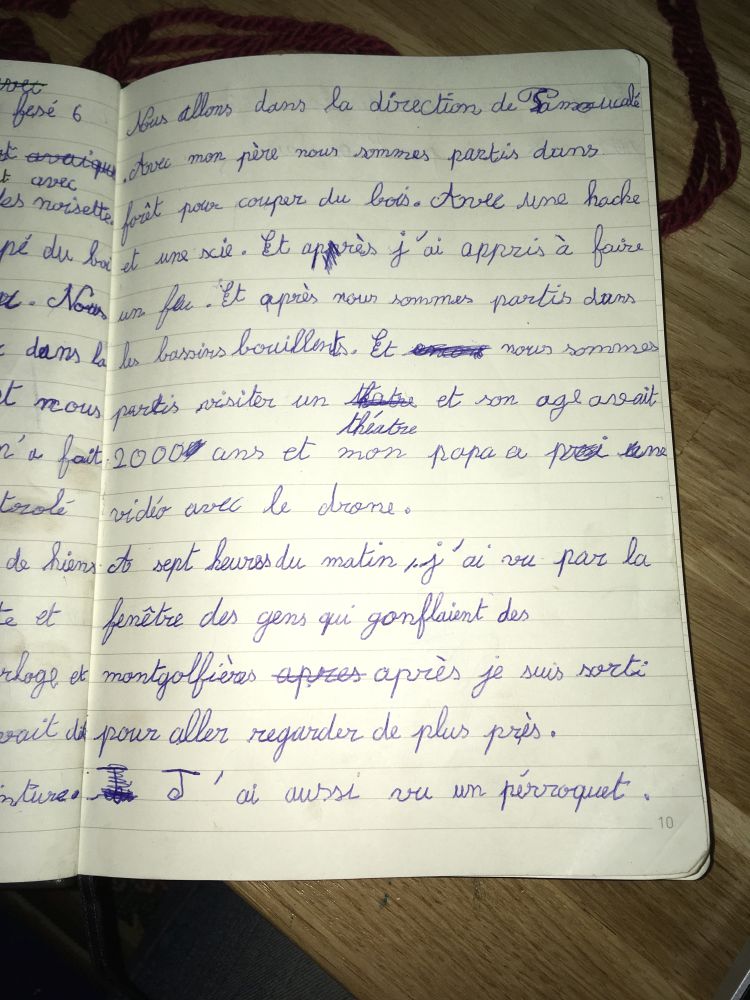 fesé 6
avec
des noisette.
pé du boi
. Nous
dans la
et nous
n'a fait
de hiens
te et
et
Nous allons dans la direction de Pamoucalé
. Avec mon père nous sommes partis dans
forêt pour couper du bois. Avec une hache
et une scie. Et apprès j'ai appris à faire
un feu. Et après nous sommes partis dans
les bassins bouillents. Et nous sommes
partis visiter un théatre et son age avait
2000 ans et mon papa a une
vidéo avec le drone.
A sept heures du matin, j'ai vu par la
fenêtre des gens qui gonflaient des
montgolfières apres après je suis sorti
pour aller regarder de plus près.
J'ai aussi vu un pérroquet.
10